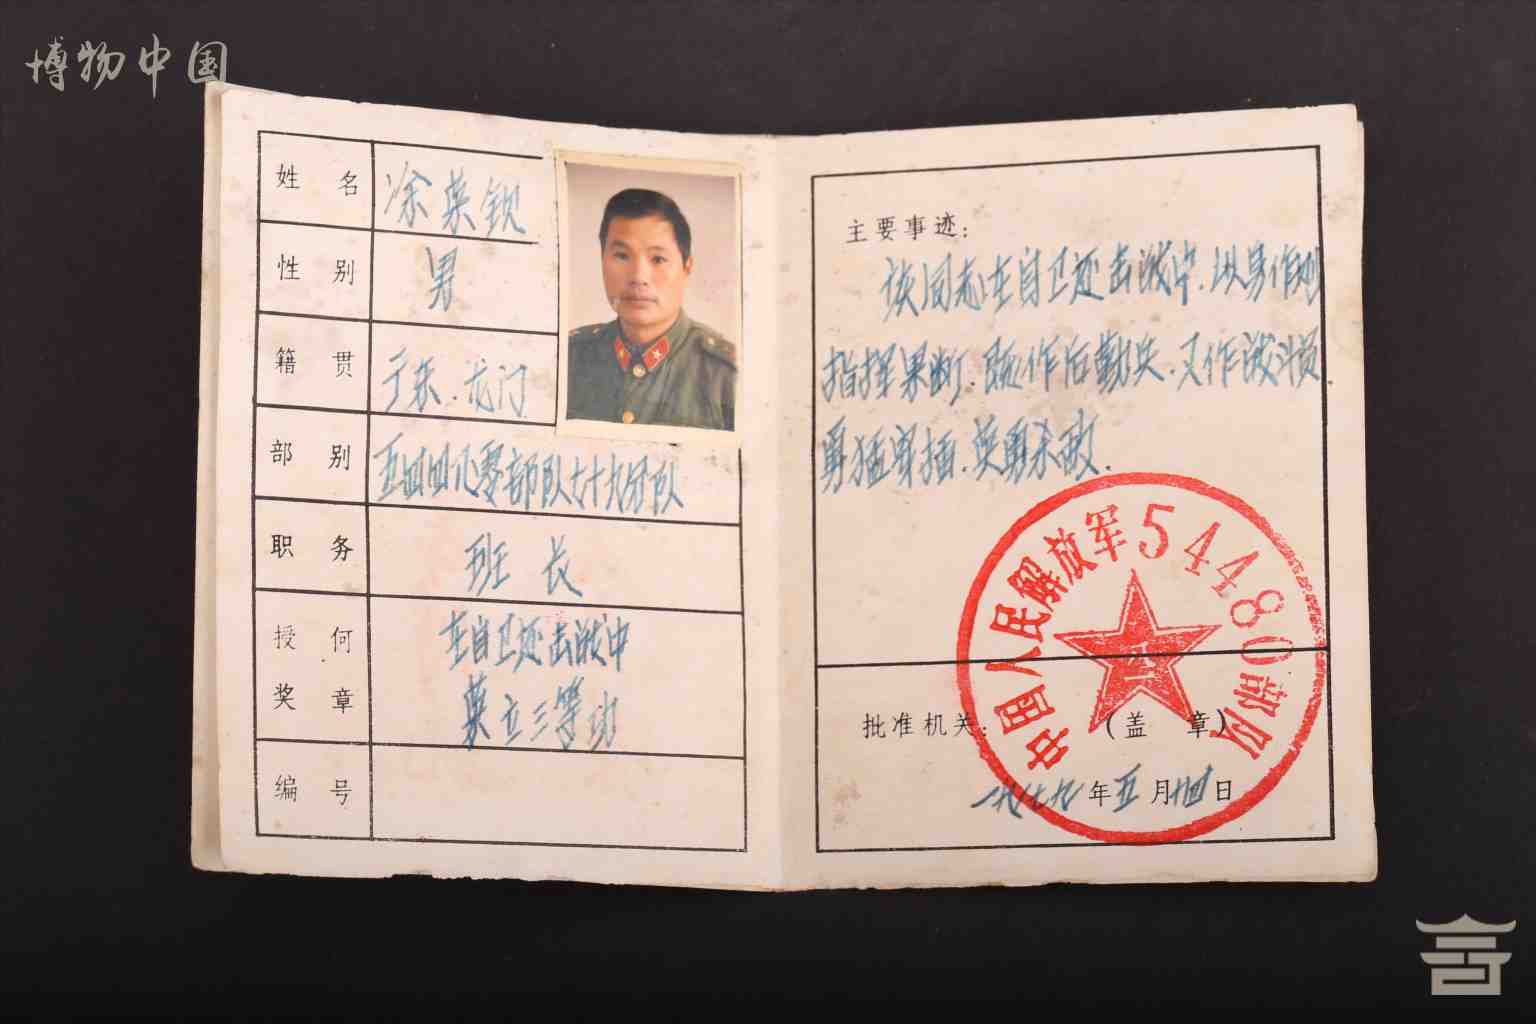 博物中国
姓名 涂英钡
性别 男
籍贯 广东.龙门
部别 五四四八零部队七十九分队
职务 班长
授何奖章 在自卫还击战中
荣立三等功
编号
主要事迹:
该同志在自卫还击战中.以身作则
指挥果断.既作后勤兵.又作战斗员.
勇猛穿插.英勇杀敌.
中国人民解放军54480部队
批准机关: (盖 章)
一九七九年五月廿四日